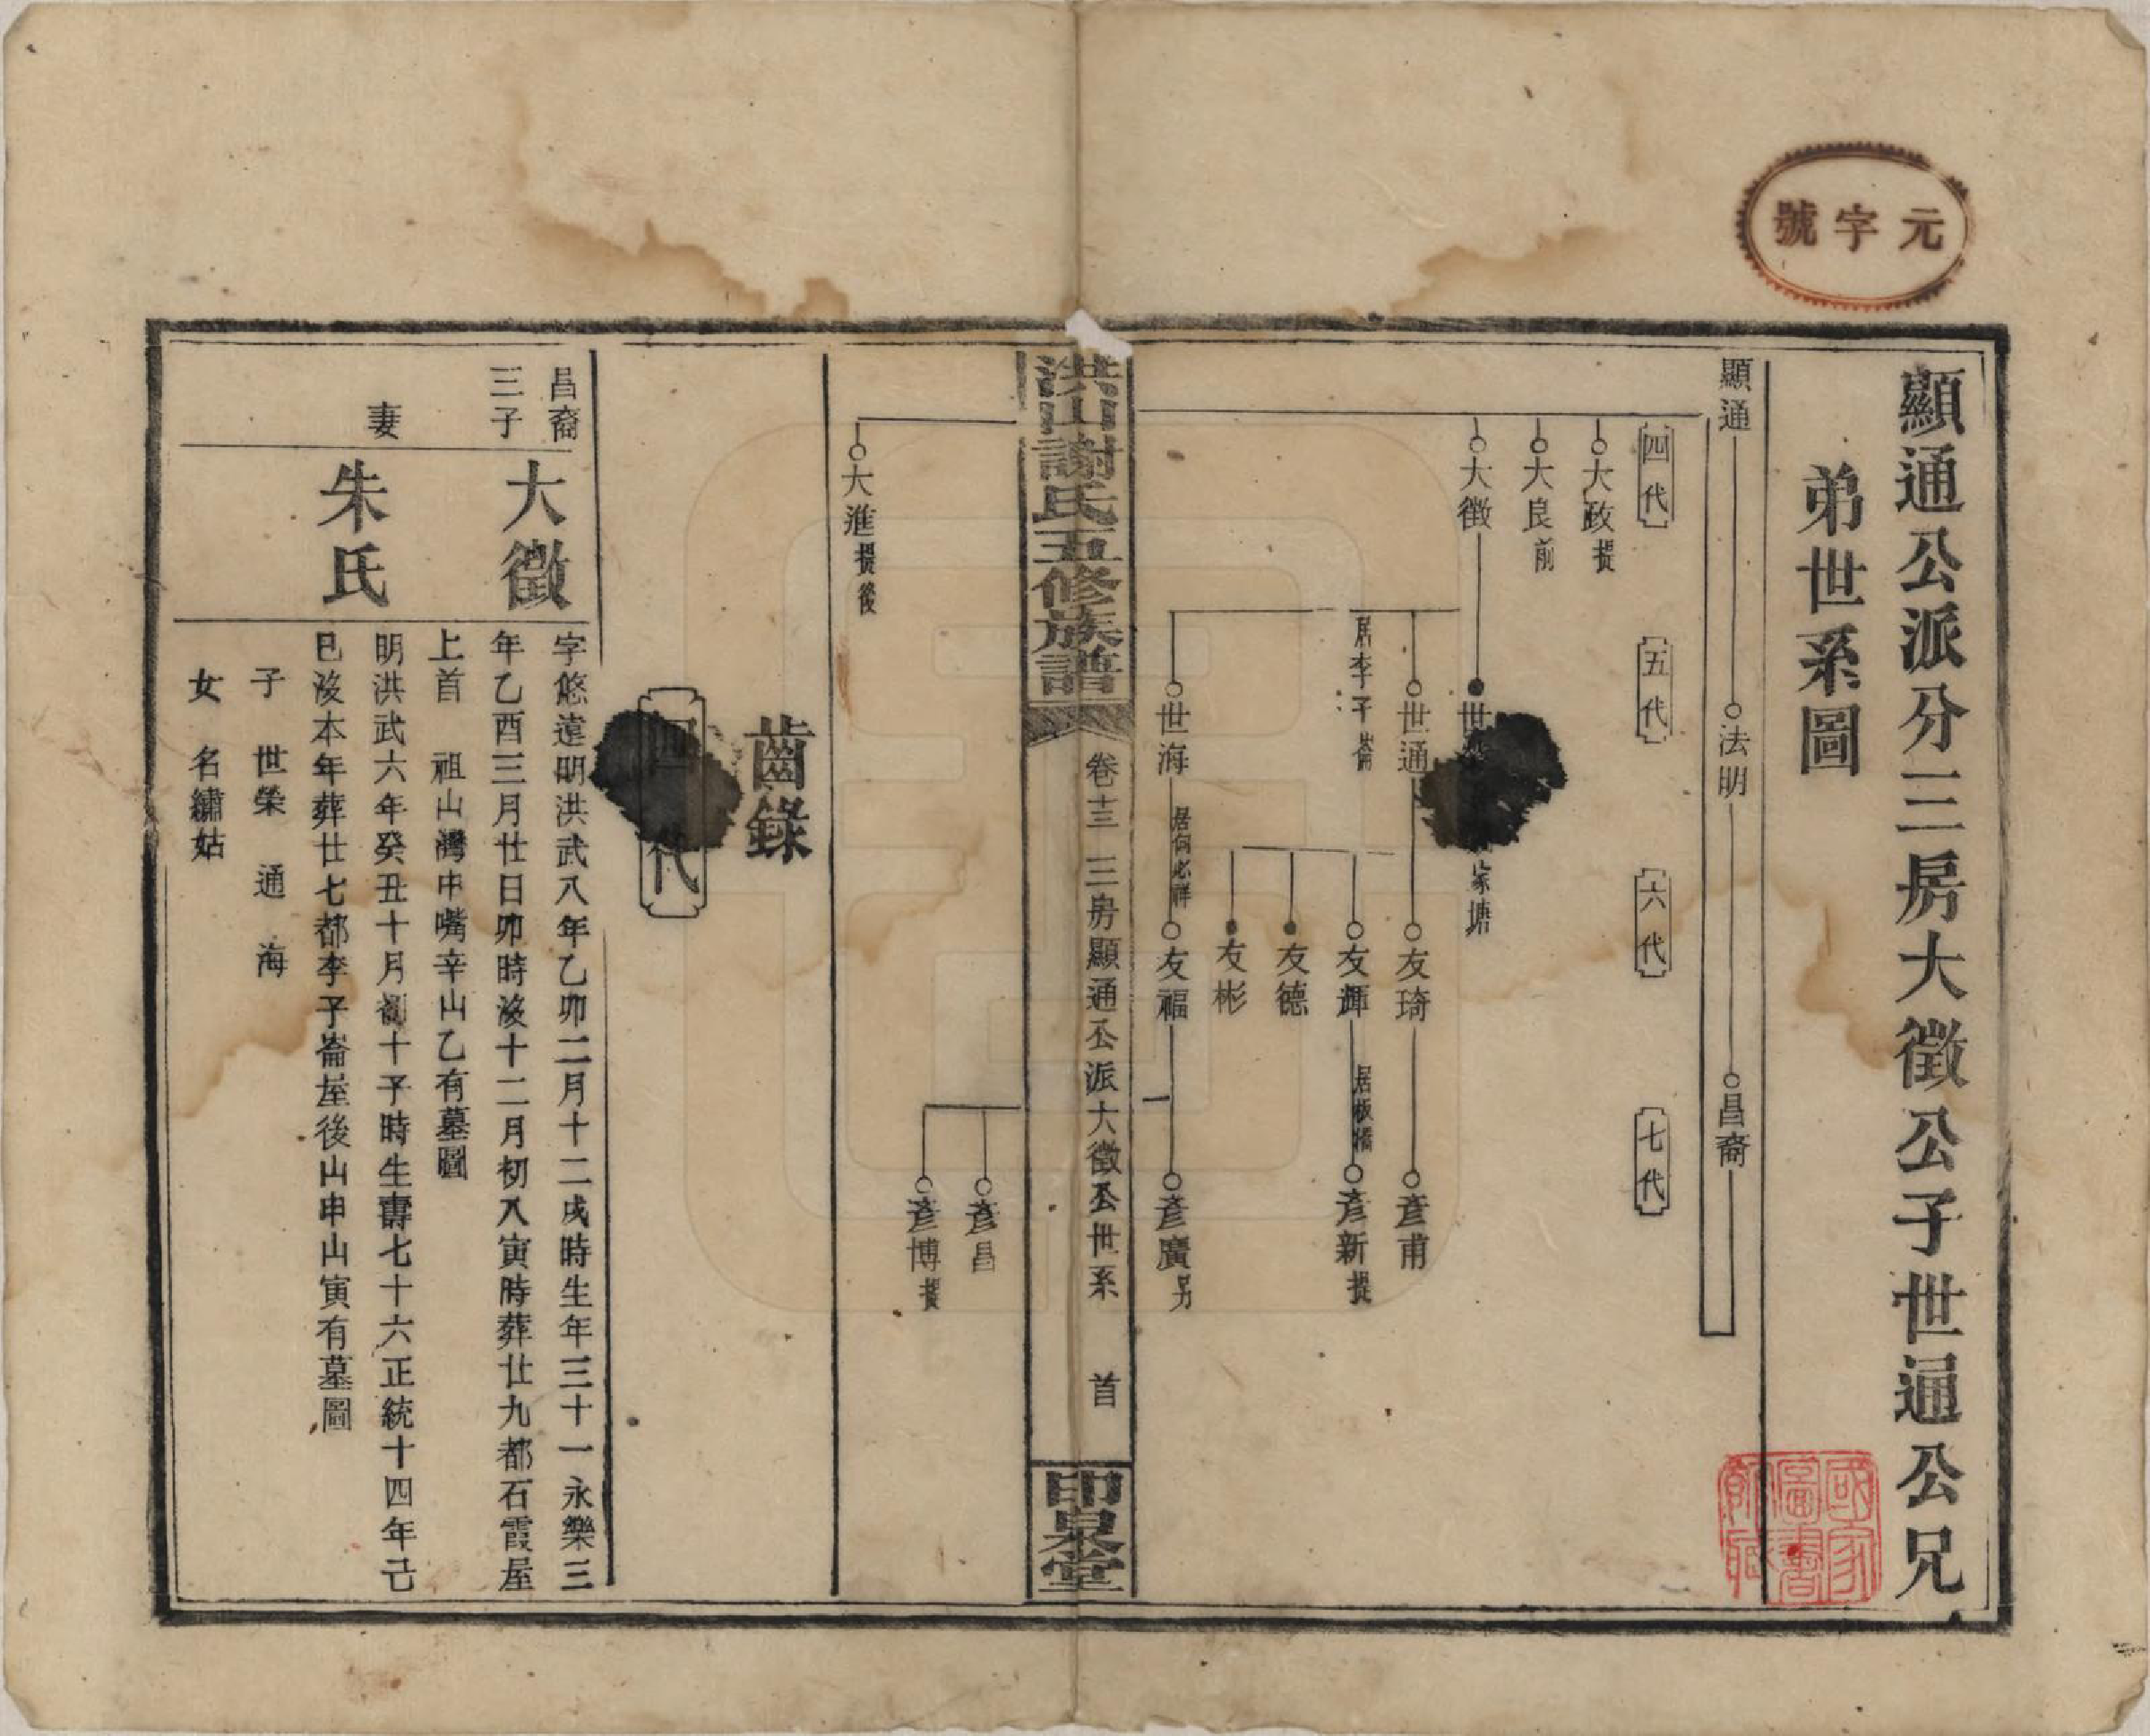 元字號
顯通公派分三房大徵公子世通公兄
弟世系圖
顯通
法明
昌裔
四代
五代
六代
七代
大政 提
大良 前
大徵
世
家塘
世通
居李子崙
友琦
彥甫
友輝
居板橋
彥新 提
友德
友彬
世海
居何必祥
友福
彥廣 另
洪山謝氏五修族譜
卷十三
三房顯通公派大徵公世系
首
印泉堂
彥昌
彥博 提
大進 提後
齒錄
四代
昌裔
三子
大徵
字悠遠明洪武八年乙卯二月十二戌時生年三十一永樂三
年乙酉三月廿日卯時沒十二月初八寅時葬廿九都石霞屋
上首 祖山灣中嘴辛山乙有墓圖
妻
朱氏
明洪武六年癸丑十月初十子時生壽七十六正統十四年己
巳沒本年葬廿七都李子崙屋後山申山寅有墓圖
子 世榮 通 海
女 名繡姑
國家
圖書
館藏